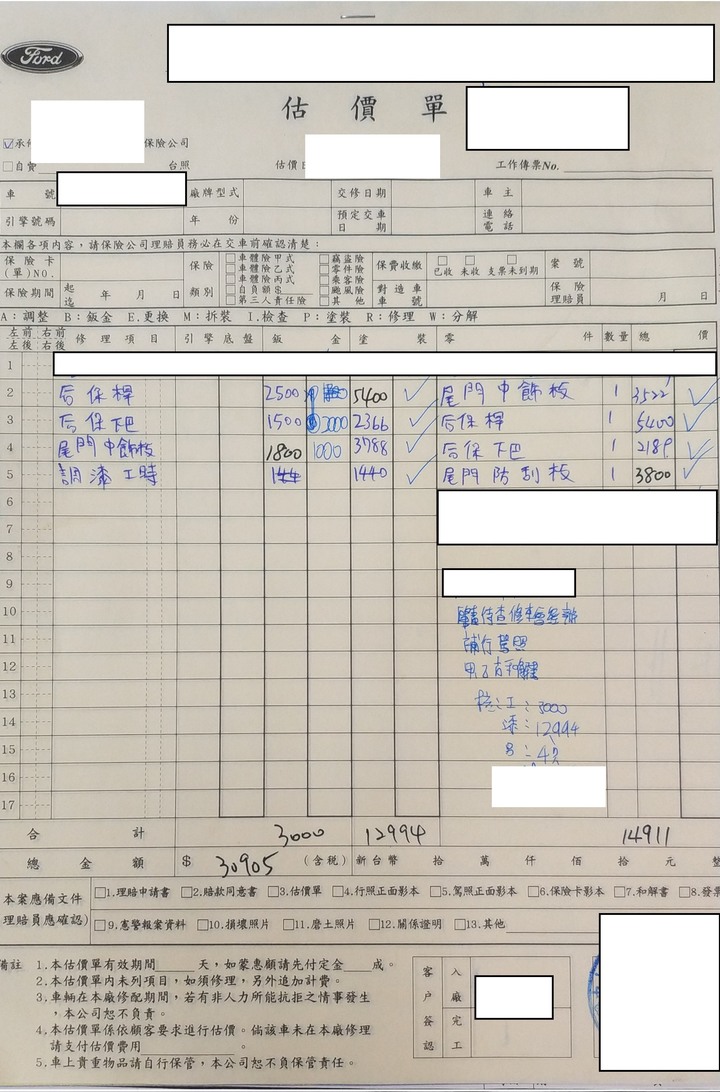 Ford
估價單
承
保險公司
自費
台照
估價日
工作傳票No.
車號 廠牌型式 交修日期 車主
引擎號碼 年份 預定交車日期 連絡電話
本欄各項內容，請保險公司理賠員務必在交車前確認清楚：
保險卡(單)NO. 保險類別 車體險甲式 竊盜險 保費收繳 已收 未收 支票未到期 案號
車體險乙式 零件險
車體險丙式 乘客險
保險期間 起迄 年 月 日 自負額$ 颱風險 對造車車號 保險理賠員 月 日
第三人責任險 其他
A：調整 B：鈑金 E.更換 M：拆裝 I.檢查 P：塗裝 R：修理 W：分解
左前 右前 左後 右後 修理項目 引擎底盤 鈑金 塗裝 零件 數量 總價
1
2 后保桿 2500 5400 尾門中飾板 1 3522
3 后保下巴 1500 3000 2366 后保桿 1 5400
4 尾門中飾板 1800 1000 3788 后保下巴 1 2189
5 調漆工時 1440 尾門防刮板 1 3800
6
7
8
9
10
11 補行駕照
12
13 工：3000
14 漆：12994
15
16
17
合計 3000 12994 14911
總金額 $ 30905 (含稅) 新台幣 拾 萬 仟 佰 拾 元 整
本案應備文件 1.理賠申請書 2.賠款同意書 3.估價單 4.行照正面影本 5.駕照正面影本 6.保險卡影本 7.和解書 8.發票
理賠員應確認) 9.憲警報案資料 10.損壞照片 11.磨土照片 12.關係證明 13.其他
備註 1.本估價單有效期間 天，如蒙惠顧請先付定金 成。
2.本估價單內未列項目，如須修理，另外追加計費。
3.車輛在本廠修配期間，若有非人力所能抗拒之情事發生
，本公司恕不負責。
4.本估價單係依顧客要求進行估價。倘該車未在本廠修理
請支付估價費用 。
5.車上貴重物品請自行保管，本公司恕不負保管責任。
客戶簽認 入廠
完工